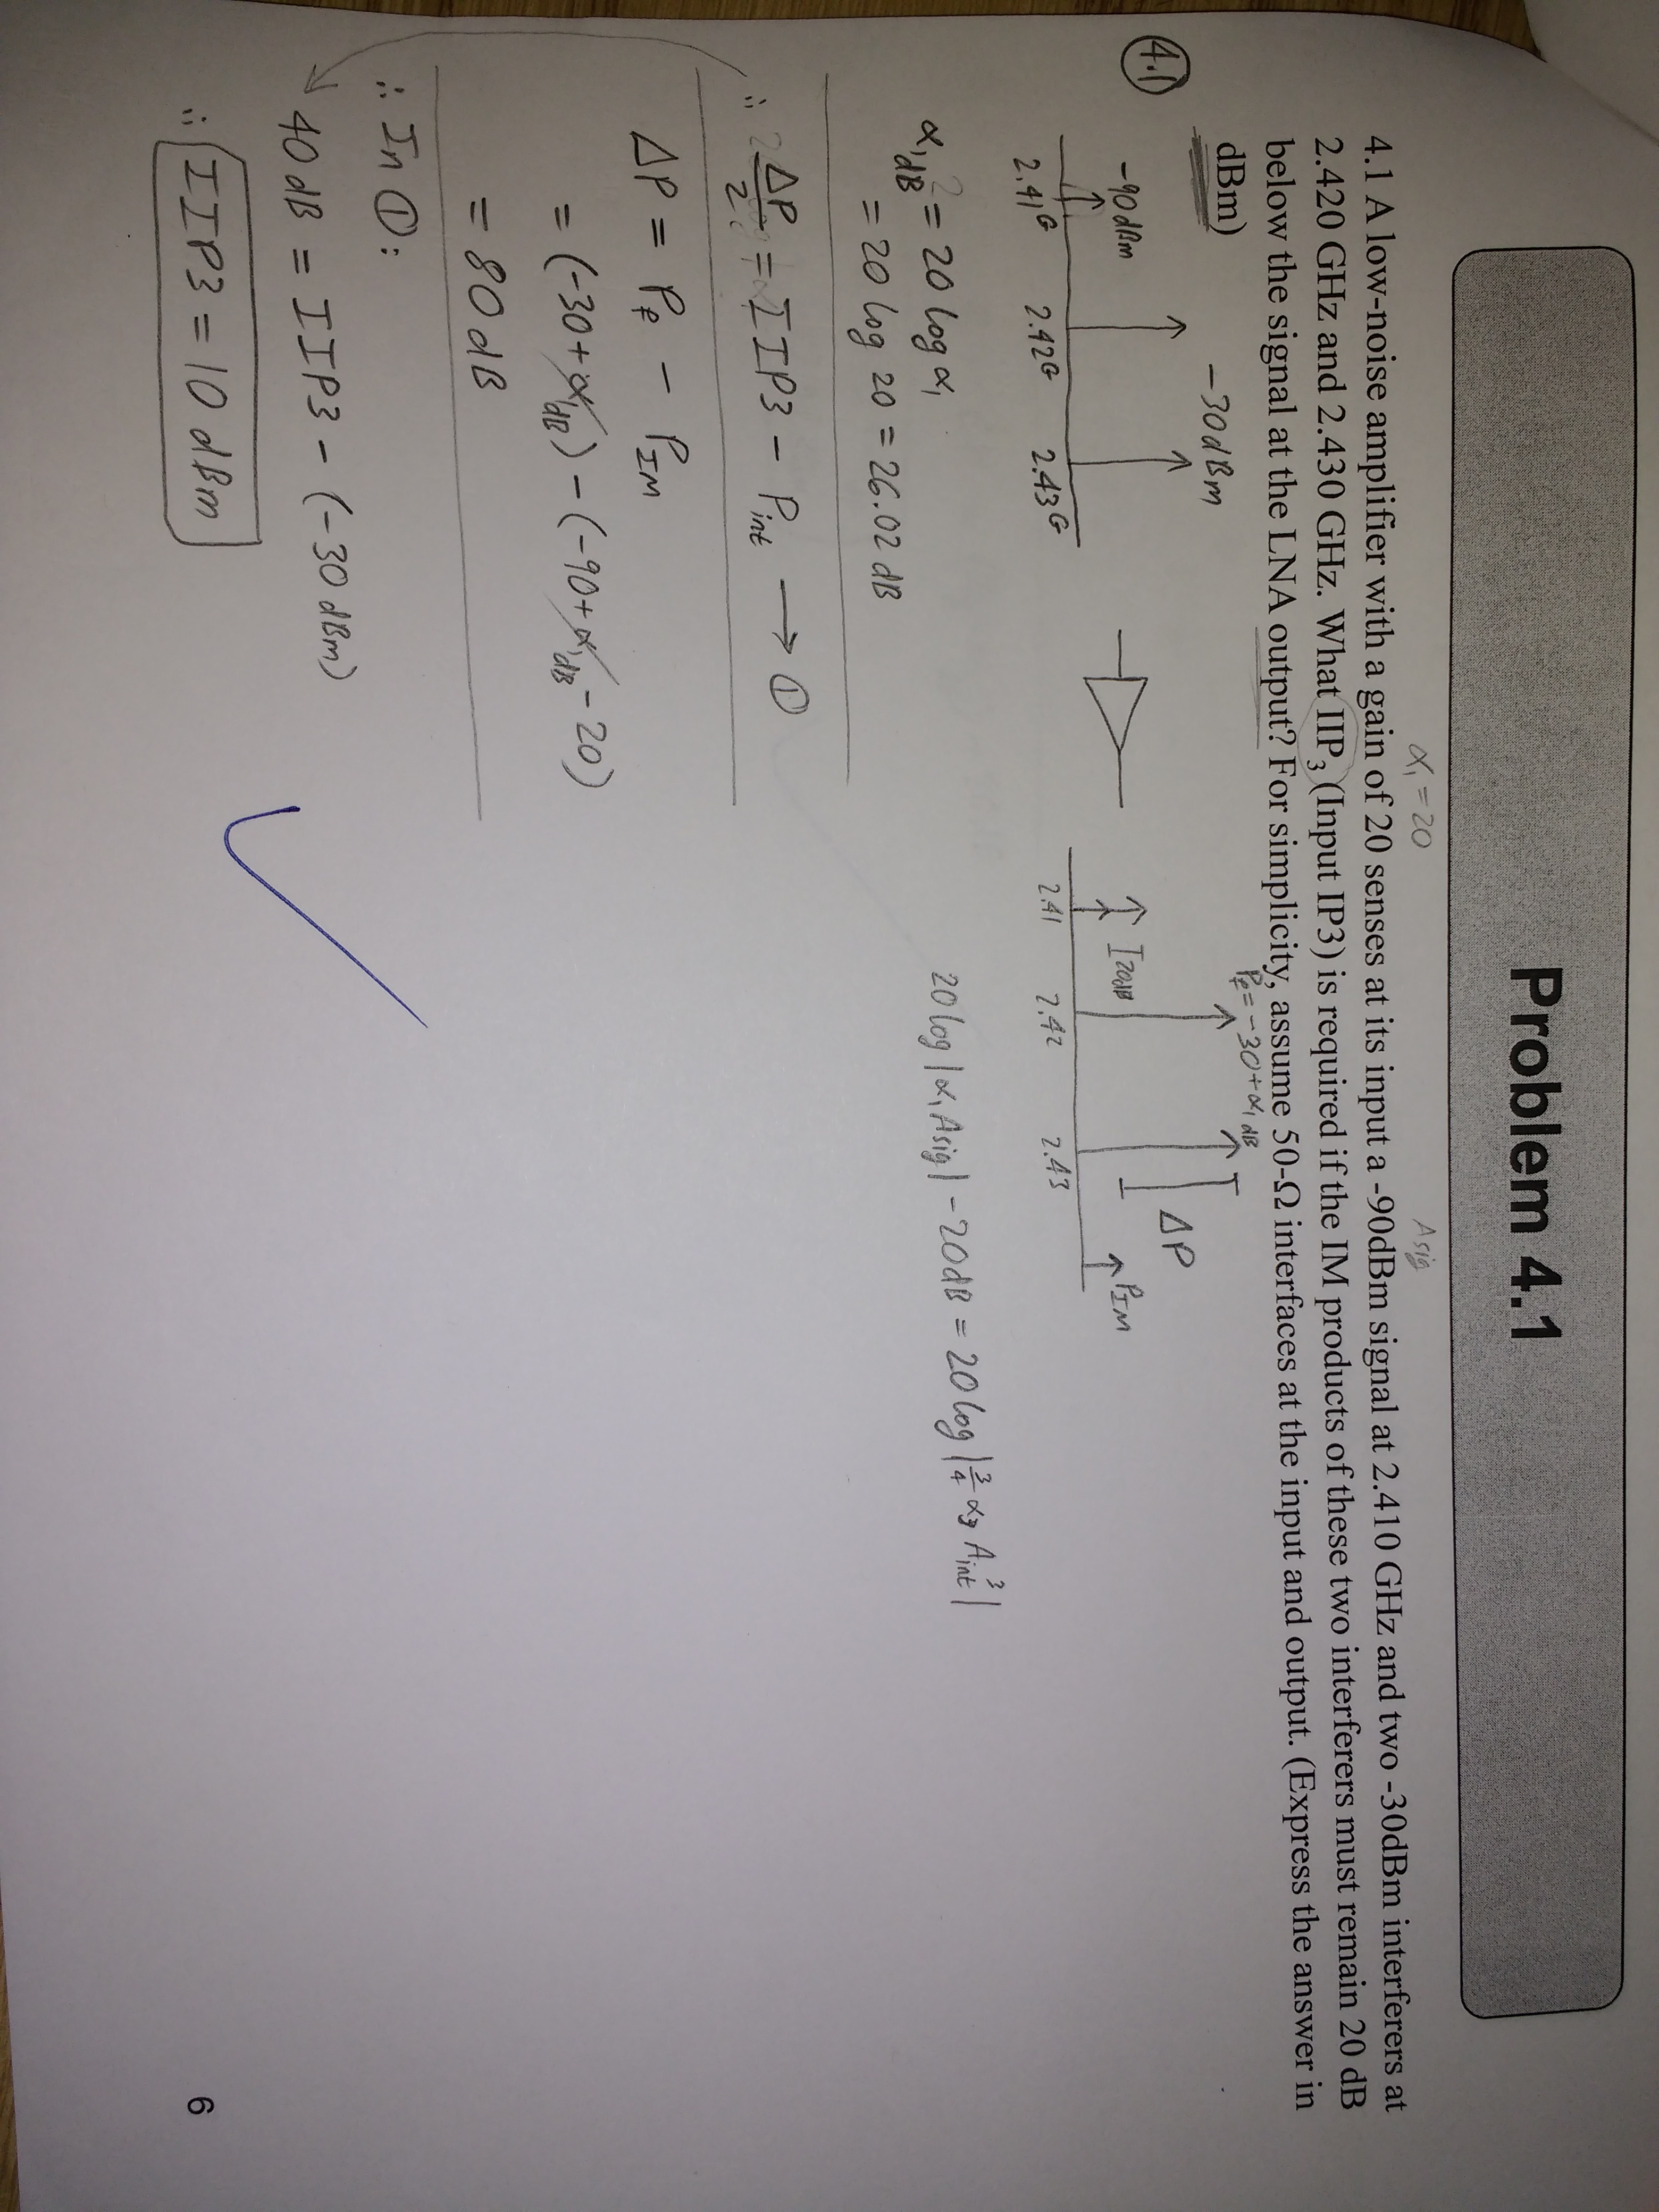 Problem 4.1
α₁ = 20
Asig
4.1 A low-noise amplifier with a gain of 20 senses at its input a -90dBm signal at 2.410 GHz and two -30dBm interferers at
2.420 GHz and 2.430 GHz. What IIP₃ (Input IP3) is required if the IM products of these two interferers must remain 20 dB
below the signal at the LNA output? For simplicity, assume 50-Ω interfaces at the input and output. (Express the answer in
dBm)
4.1
-90dBm
-30dBm
2.41G 2.42G 2.43G
P_f = -30+α₁dB
ΔP
I20dB
P_IM
2.41 2.42 2.43
α₁dB = 20 log α₁
= 20 log 20 = 26.02 dB
20 log |α₁ Asig| - 20dB = 20 log |3/4 α₃ A³int|
∴ ΔP/2 = IIP3 - Pint → ①
ΔP = P_f - P_IM
= (-30+α₁dB) - (-90+α₁dB - 20)
= 80 dB
∴ In ①:
40 dB = IIP3 - (-30 dBm)
∴ IIP3 = 10 dBm
6